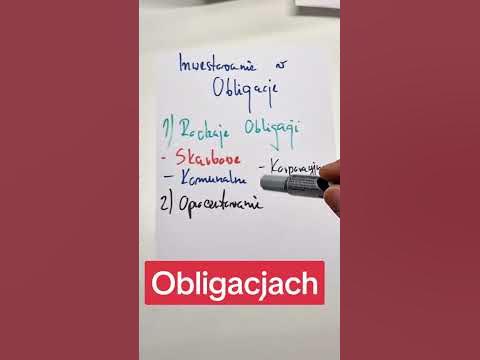 Inwestowanie w
Obligacje
1) Rodzaje Obligacji
- Skarbowe
- Korporacyjn
- Komunalne
2) Oprocentowanie
Obligacjach